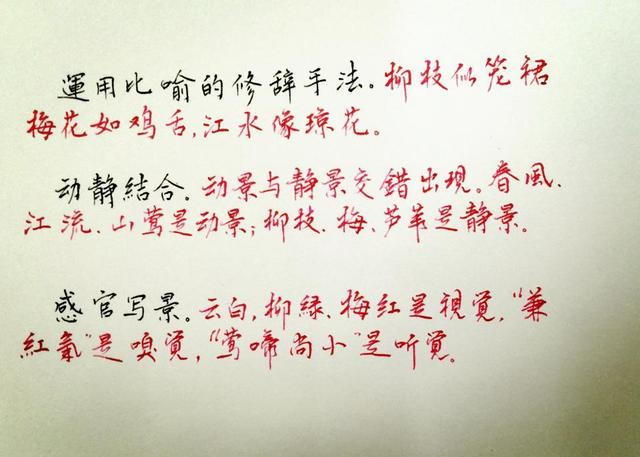 運用比喻的修辞手法。柳枝似笼裙
梅花如鸡舌,江水像琼花。
动静結合。动景与静景交錯出現。春風、
江流、山莺是动景;柳枝、梅、芦苇是静景。
感官写景。云白,柳緑、梅红是視覚,“兼
紅氣”是嗅覚,“莺啼尚小”是听覚。